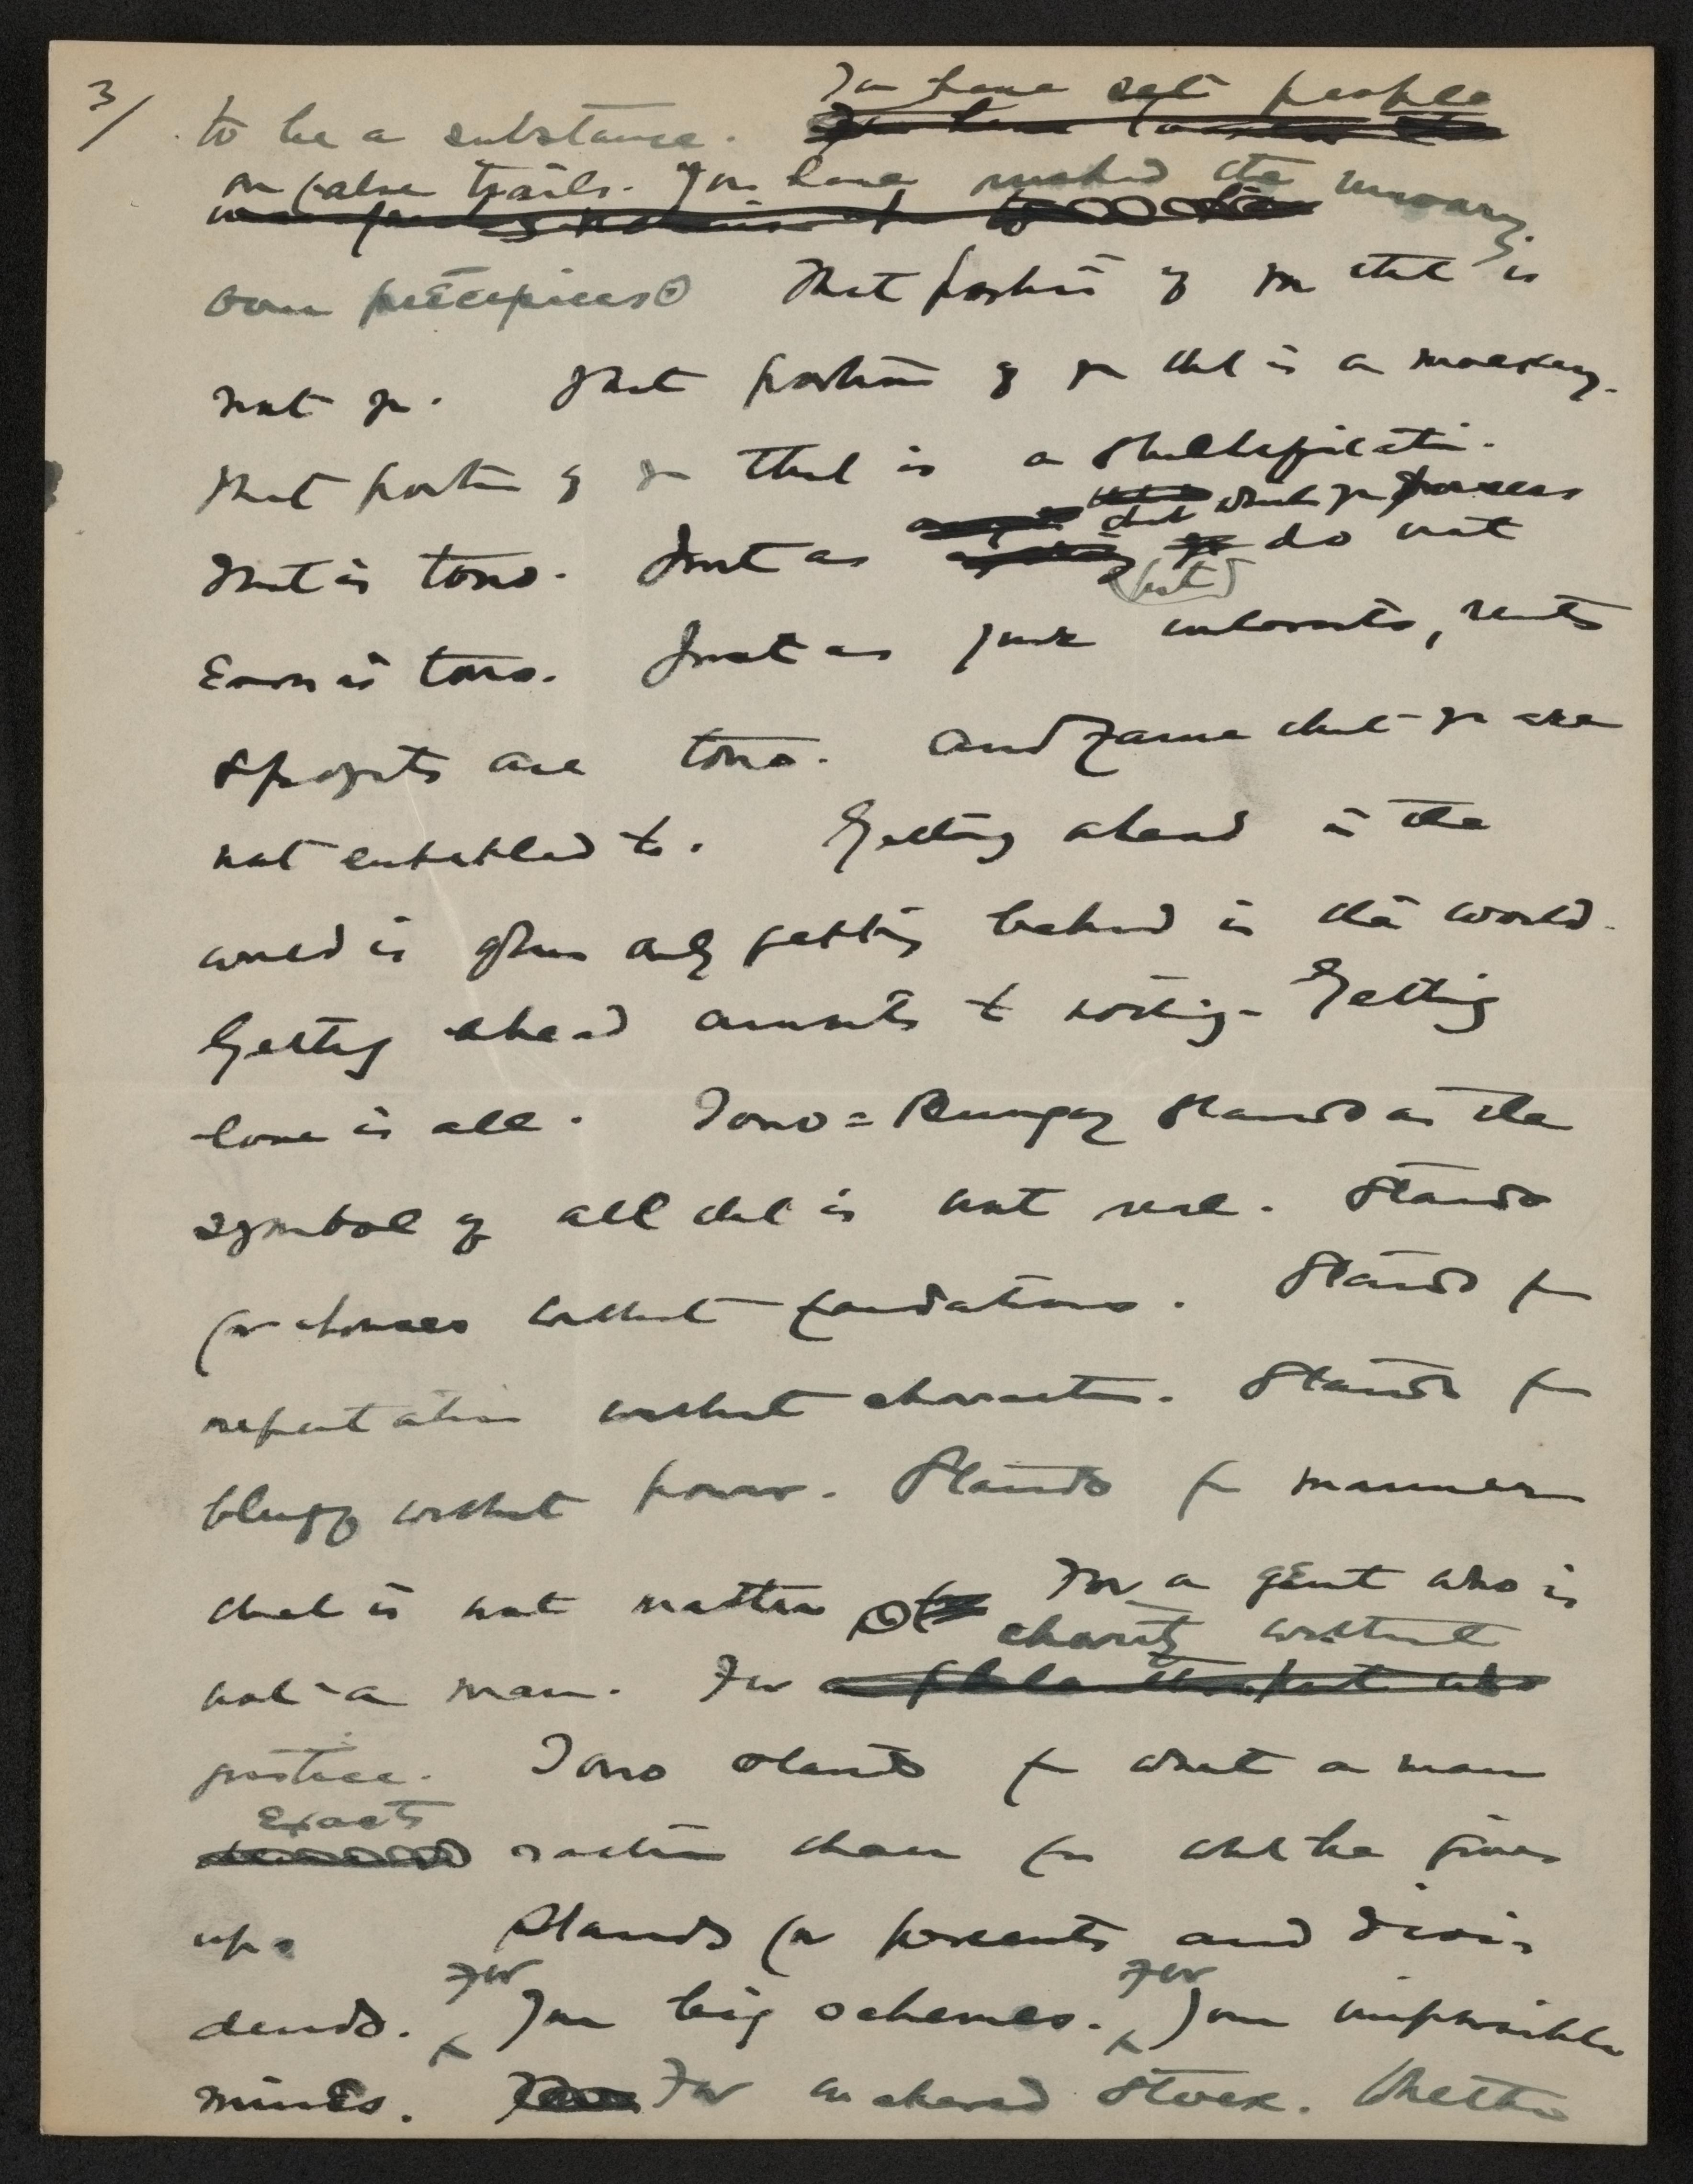 3/
You have set people
to be a substance.
on false trails. You have pushed the unwary
over precipices. That portion of you that is
not you. That portion of you that is a mockery.
That portion of you that is a
that which you possess
That is tono. Just as do not
(but)
Earn is tono. Just as your interests, rents
& profits are tono. And fame that you are
not entitled to. Getting ahead in the
world is often only getting behind in the world.
Getting ahead amounts to nothing. Getting
love is all. Tono=Bungay stands as the
symbol of all that is not real. Stands
for houses without foundations. Stands for
reputation without character. Stands for
bluff without power. Stands for manner
that is not matter For a gent who is
charity without
not a man. For a philanthropist who
justice. Tono stands for what a man
Exacts
rather than for what he gives
up. Stands for percents and divi-
For For
dends. Your big schemes. Your impossible
mines. For watered stock. Whether